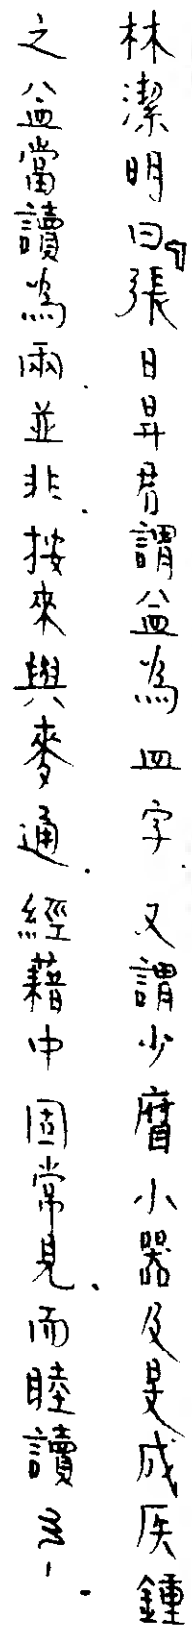 林潔明曰『張日昇君謂益為皿字．又謂少䐣小器及旻成矦鍾
之益當讀為兩．並非．按來與麥通．經藉中固常見．而睦讀